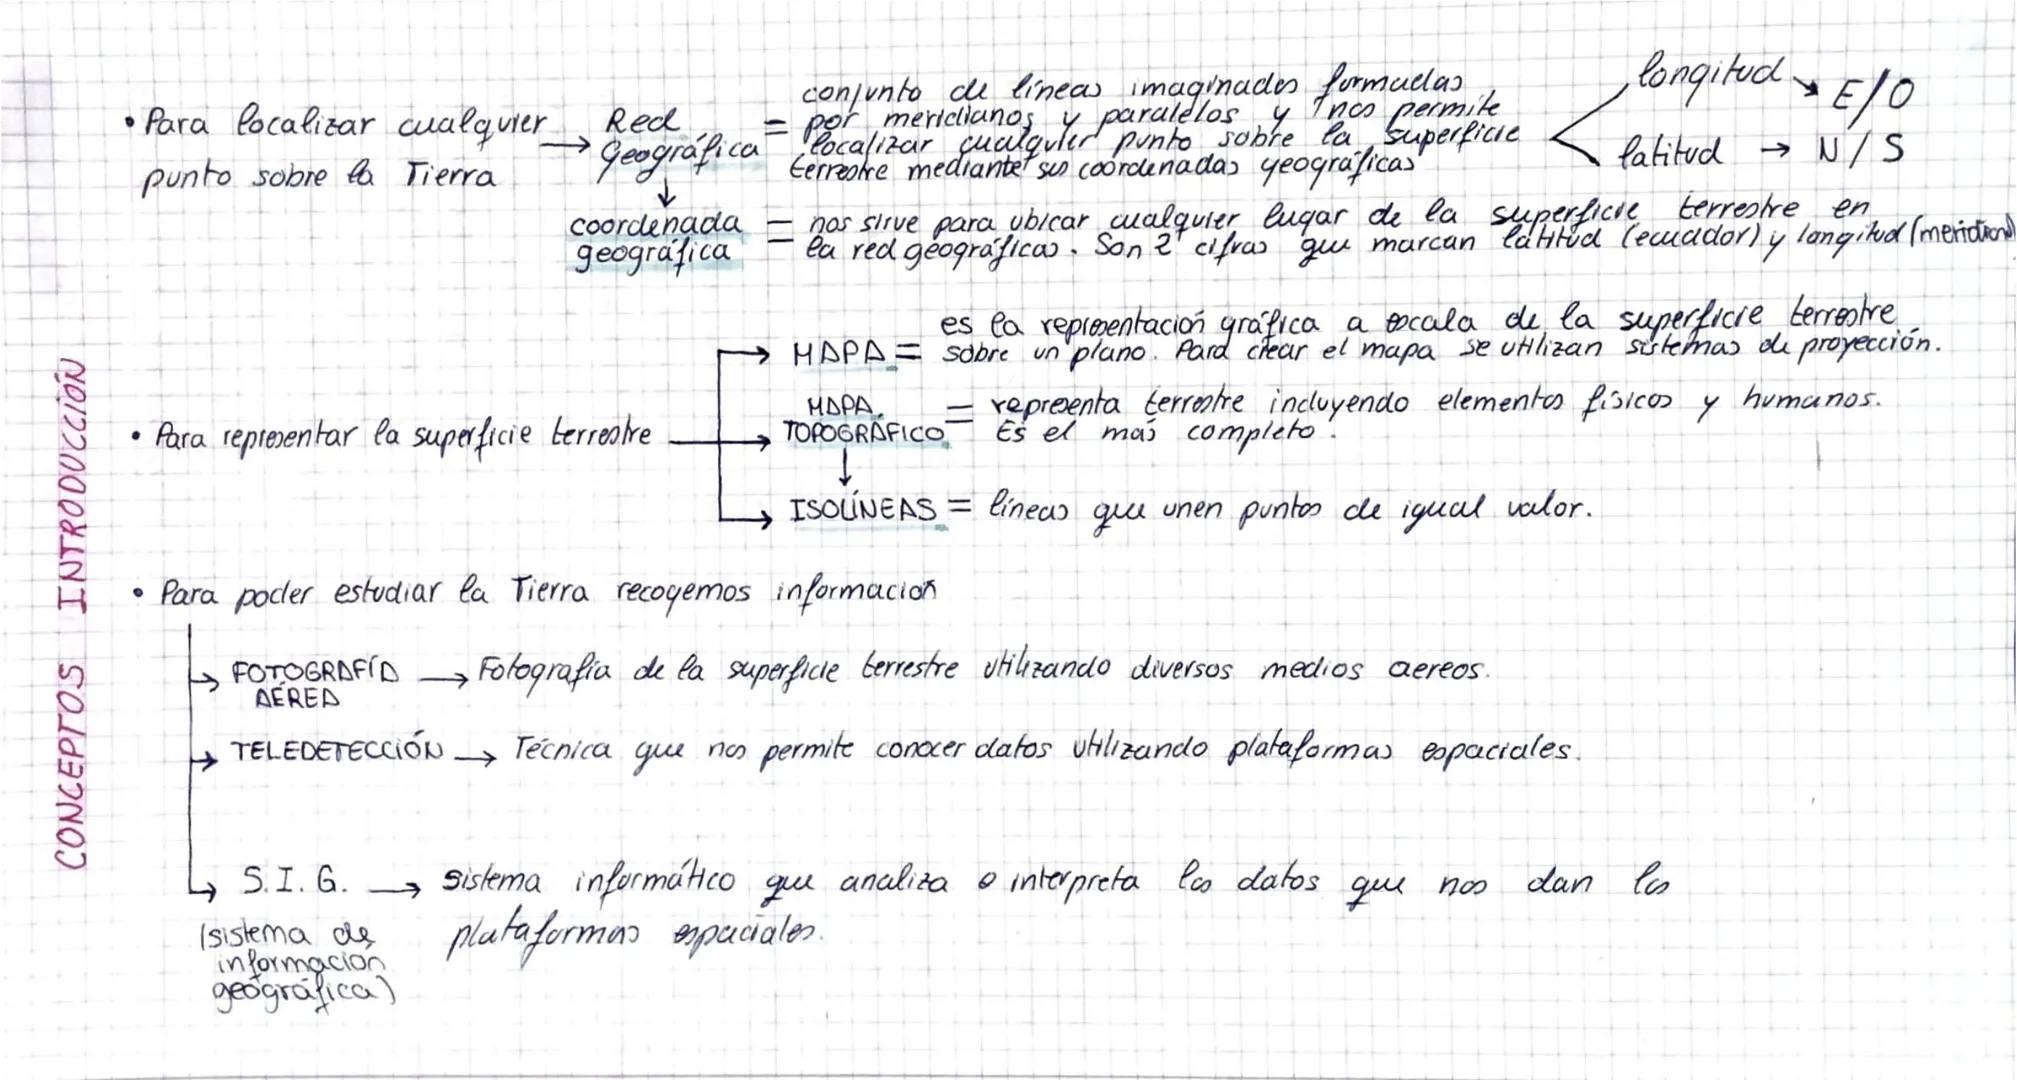 CONCEPTOS INTRODUCCIÓN
• Para localizar cualquier
punto sobre la Tierra
→ Red
Geográfica
= conjunto de líneas imaginadas formadas
por meridianos y paralelos y nos permite
localizar cualquier punto sobre la superficie
terrestre mediante sus coordenadas geográficas
longitud → E/O
latitud → N/S
↓
coordenada
geográfica
= nos sirve para ubicar cualquier lugar de la superficie terrestre en
la red geográficas. Son 2 cifras que marcan latitud (ecuador) y longitud (meridiano)
• Para representar la superficie terrestre
→ MAPA = es la representación gráfica a escala de la superficie terrestre
sobre un plano. Para crear el mapa se utilizan sistemas de proyección.
→ MAPA
TOPOGRÁFICO
= representa terrestre incluyendo elementos físicos y humanos.
Es el más completo.
↓
→ ISOLÍNEAS = líneas que unen puntos de igual valor.
• Para poder estudiar la Tierra recogemos información
→ FOTOGRAFÍA
AÉREA
→ Fotografía de la superficie terrestre utilizando diversos medios aereos.
→ TELEDETECCIÓN → Técnica que nos permite conocer datos utilizando plataformas espaciales.
→ S.I.G. → sistema informático que analiza o interpreta los datos que nos dan las
plataformas espaciales.
(sistema de
informacion
geográfica)